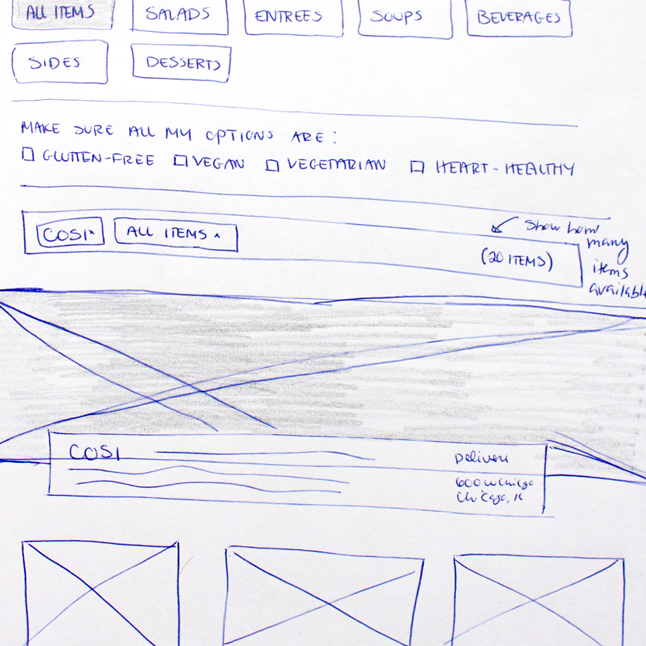 ALL ITEMS SALADS ENTREES SOUPS BEVERAGES
SIDES DESSERTS
MAKE SURE ALL MY OPTIONS ARE:
GLUTEN-FREE VEGAN VEGETARIAN HEART-HEALTHY
COSI ALL ITEMS
(20 ITEMS)
Show how
many
items
available
COSI
Delivery
600 W Chicago
Chicago, IL